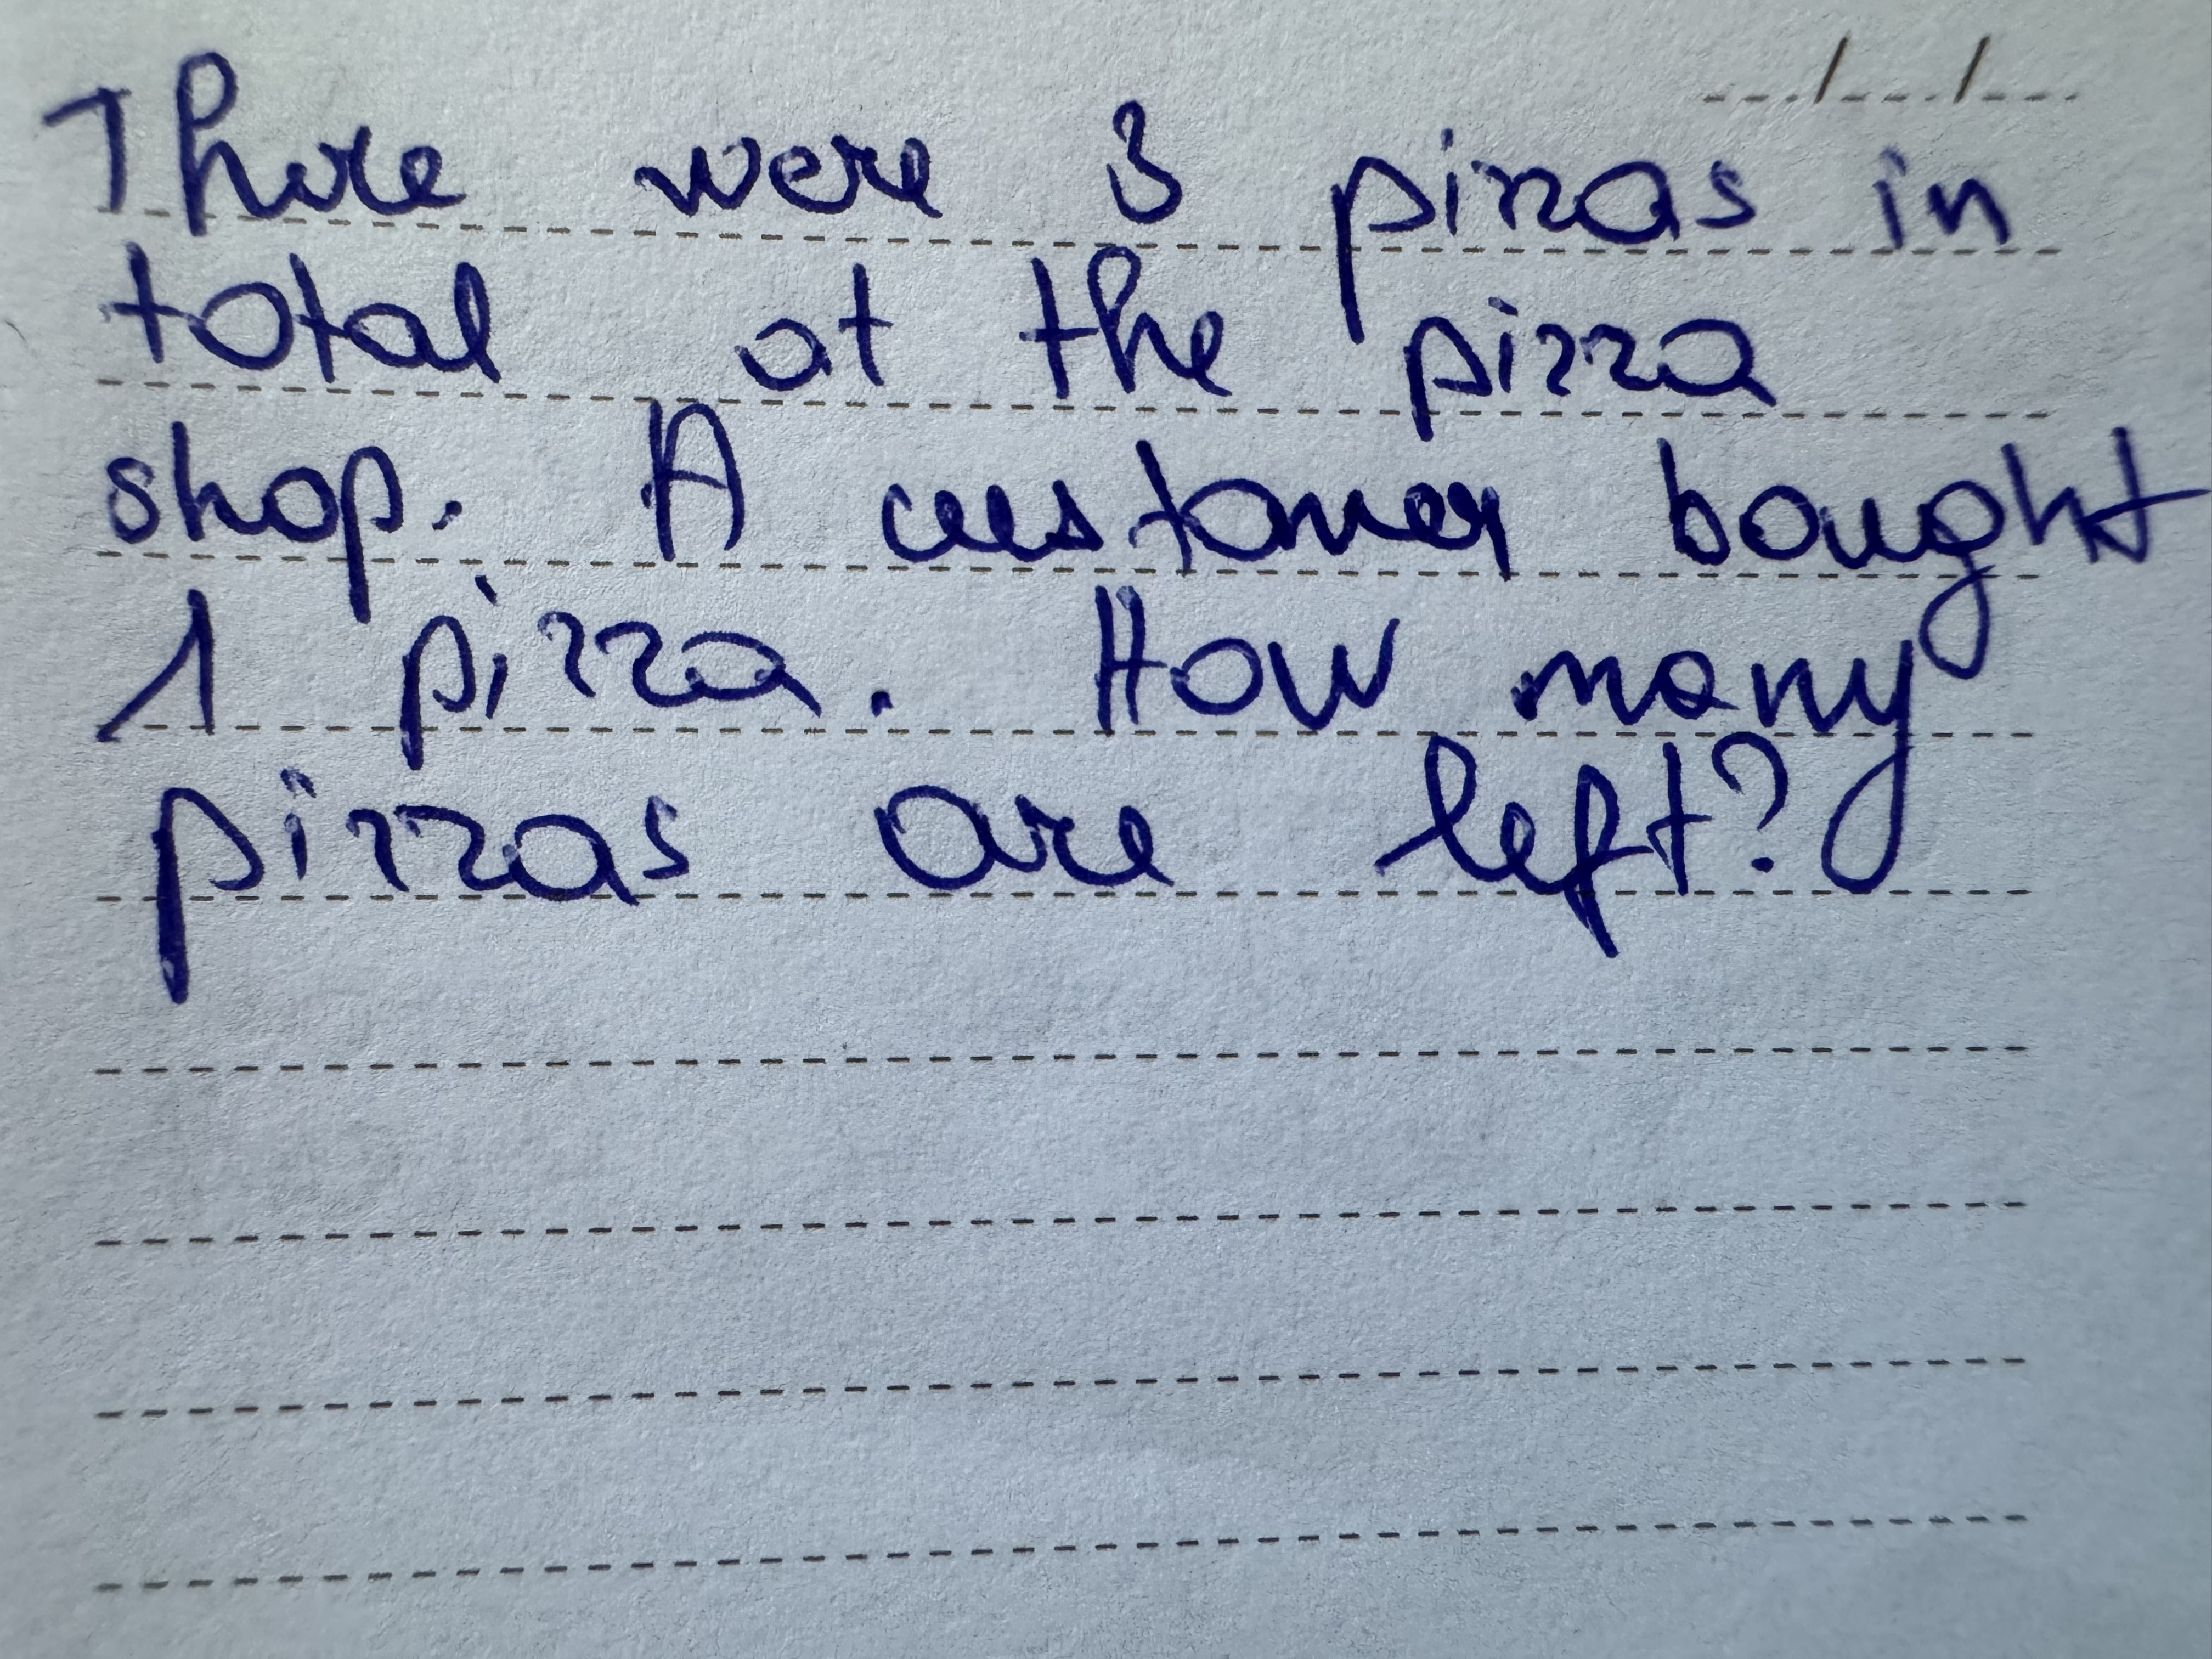 There were 3 pizzas in
total at the pizza
shop. A customer bought
1 pizza. How many
pizzas are left?